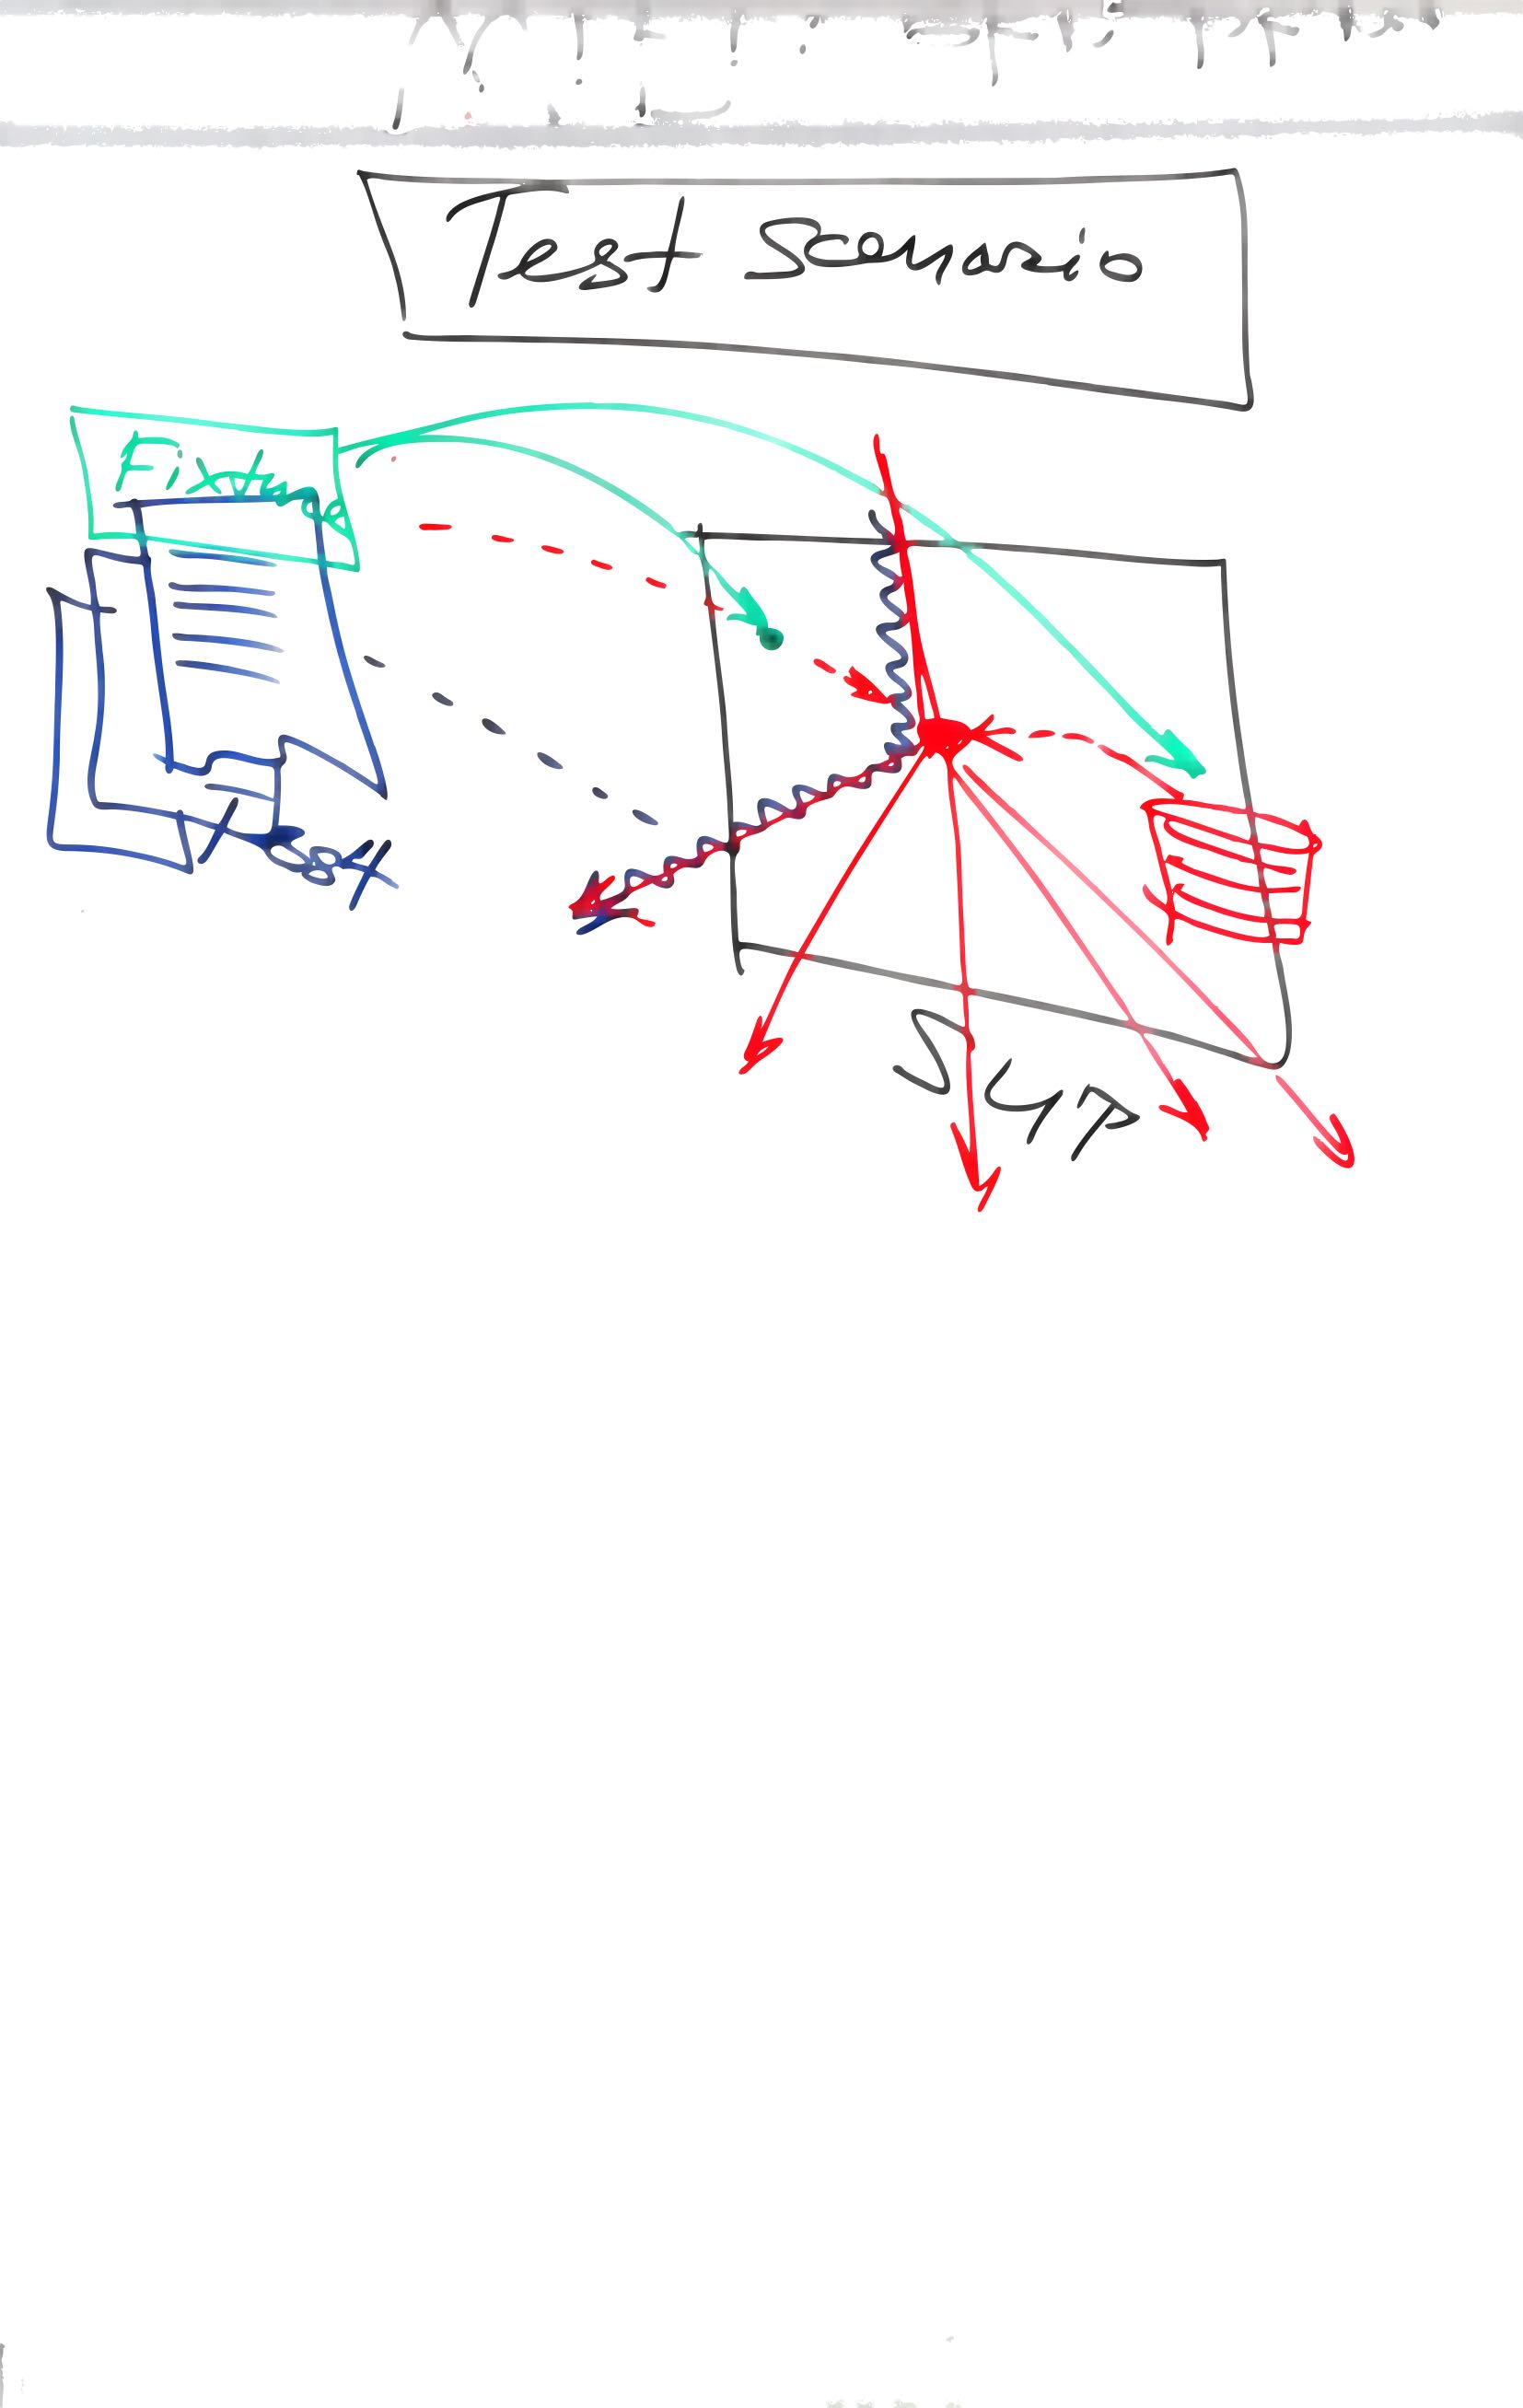 Test Scenario
Fixture
Test
SUT